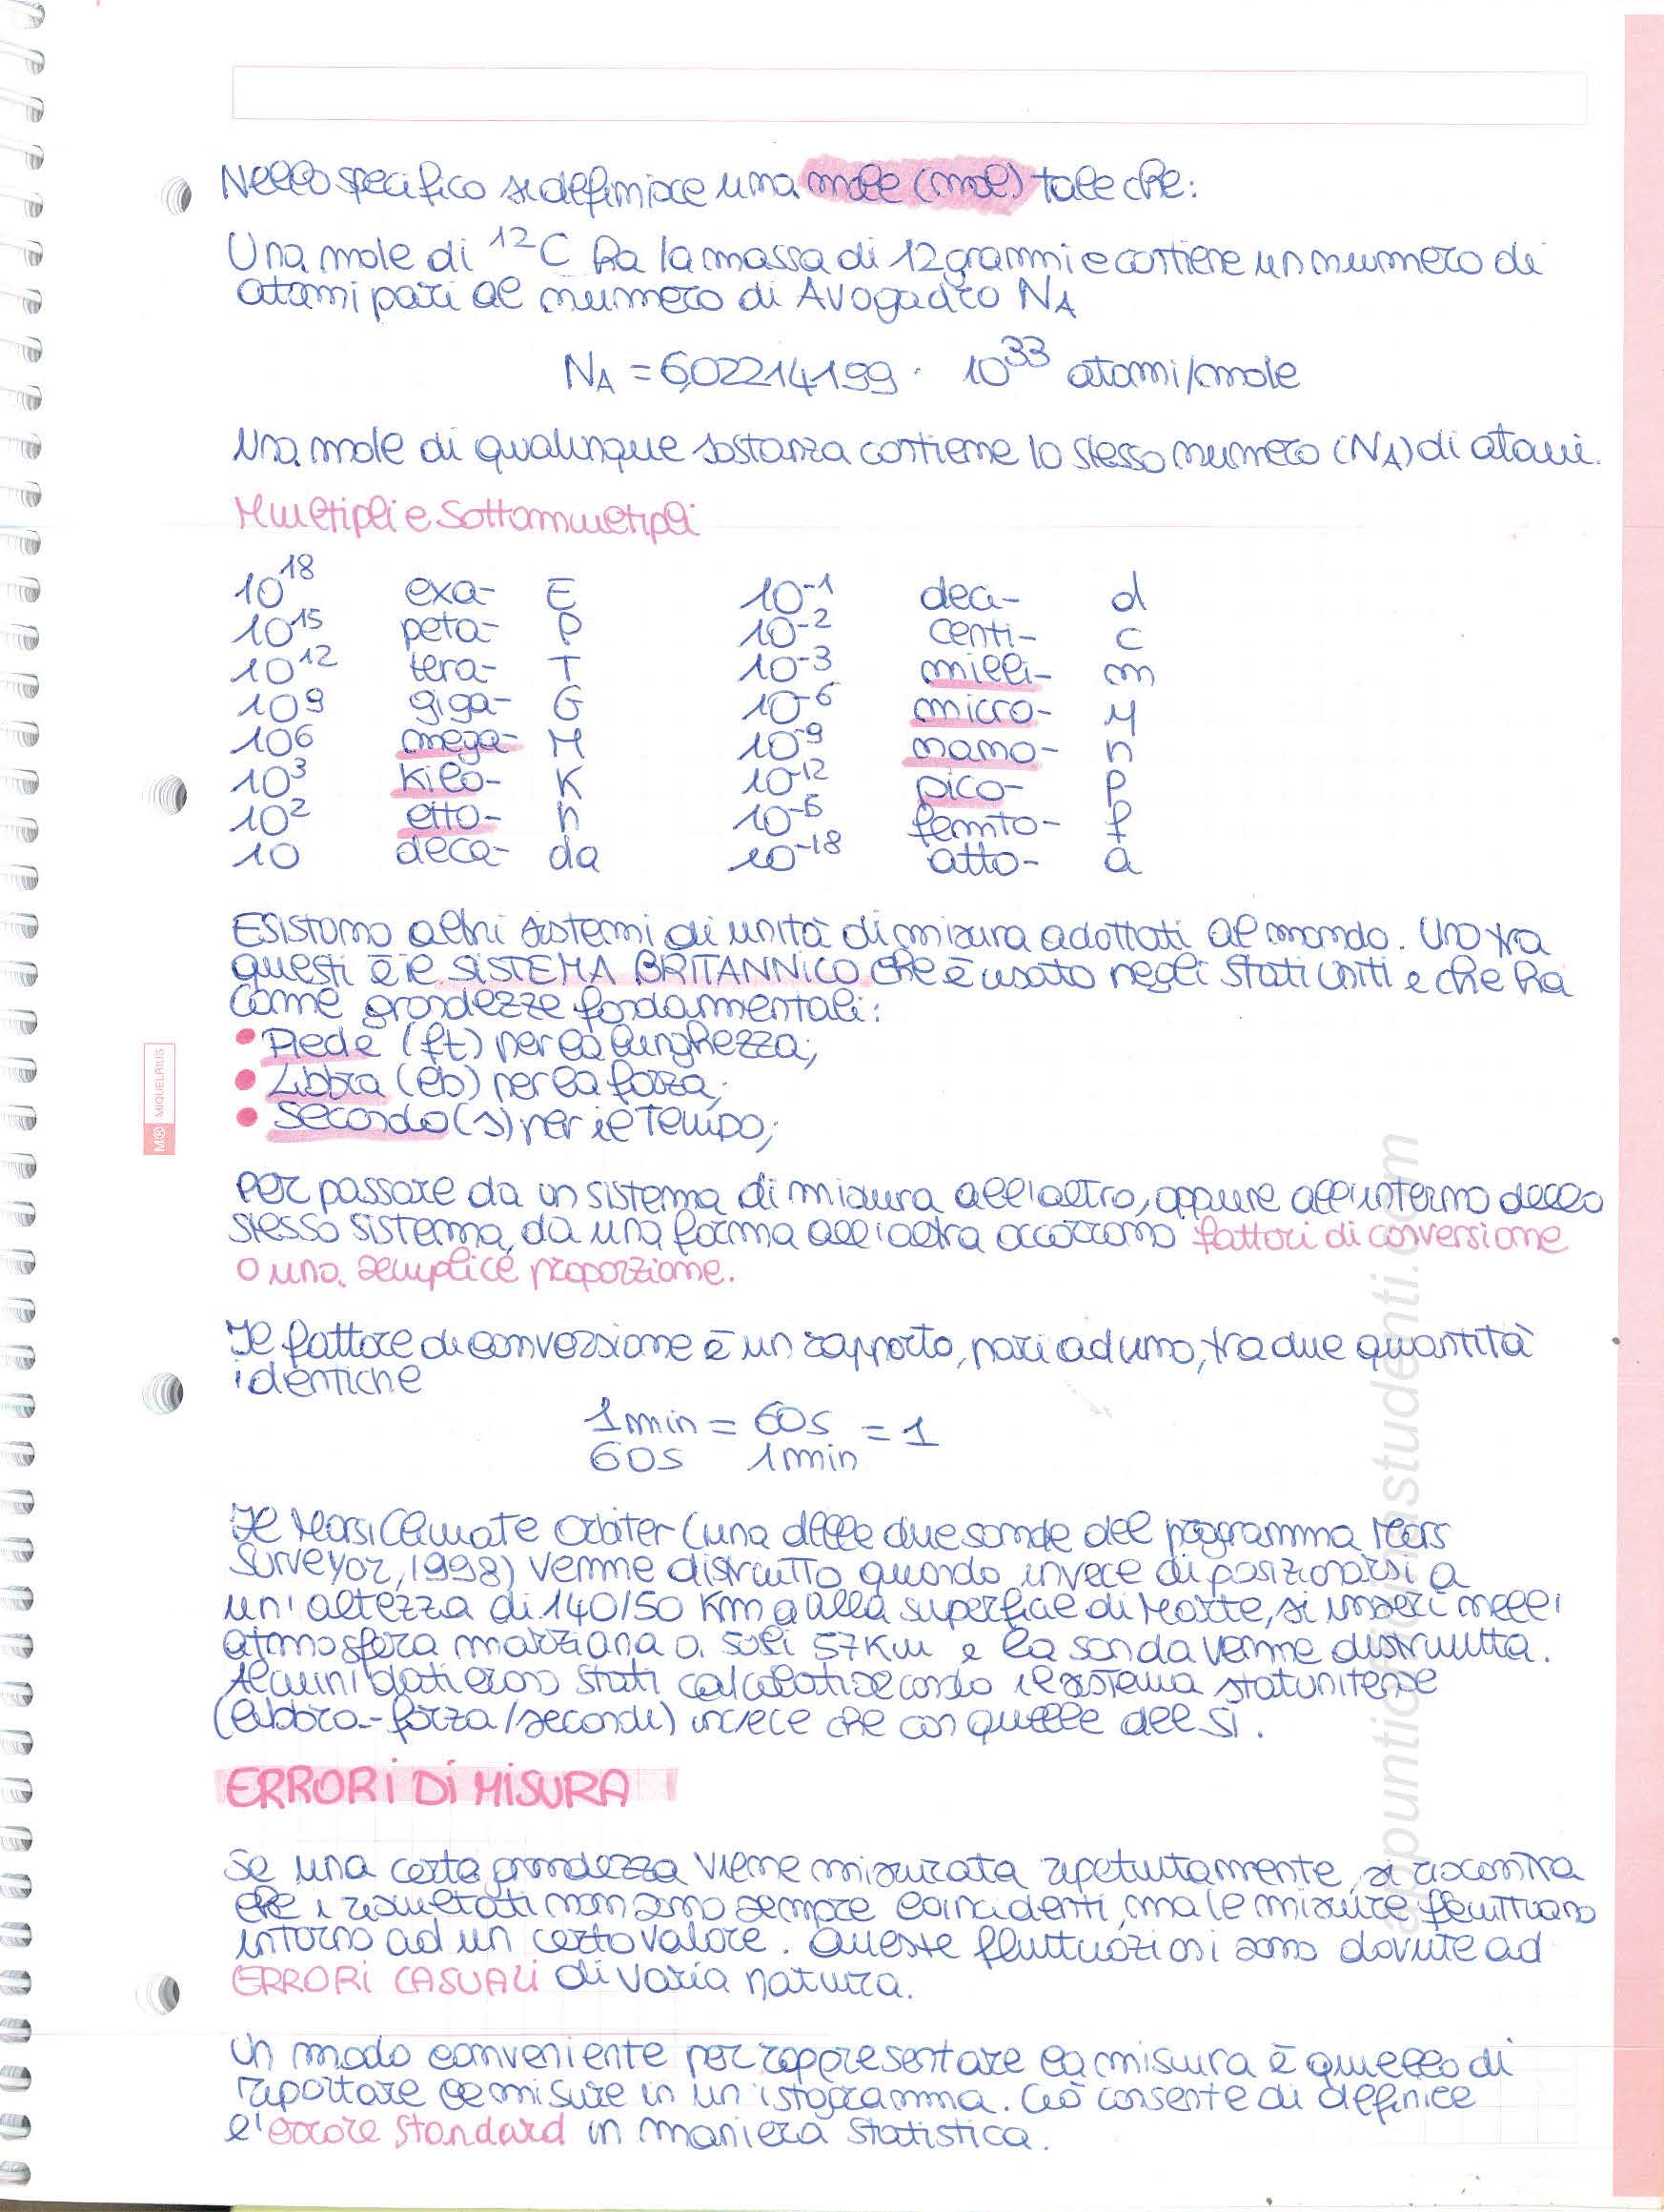 Nello specifico si definisce una mole (mol) tale che:
Una mole di ¹²C ha la massa di 12 grammi e contiene un numero di
atomi pari al numero di Avogadro NA
NA = 6,02214199 · 10³³ atomi/mole
Una mole di qualunque sostanza contiene lo stesso numero (NA) di atomi.
Multipli e Sottomultipli
10¹⁸ exa- E 10⁻¹ deci- d
10¹⁵ peta- P 10⁻² centi- c
10¹² tera- T 10⁻³ milli- m
10⁹ giga- G 10⁻⁶ micro- μ
10⁶ mega- M 10⁻⁹ nano- n
10³ kilo- K 10⁻¹² pico- p
10² etto- h 10⁻¹⁵ femto- f
10 deca- da 10⁻¹⁸ atto- a
Esistono altri sistemi di unità di misura adottati al mondo. Uno tra
questi è il SISTEMA BRITANNICO che è usato negli Stati Uniti e che ha
come grandezze fondamentali:
• Piede (ft) per la lunghezza;
• Libbra (lb) per la forza;
• Secondo (s) per il tempo;
Per passare da un sistema di misura all'altro, oppure all'interno dello
stesso sistema, da una forma all'altra occorrono fattori di conversione
o una semplice proporzione.
Il fattore di conversione è un rapporto, pari ad uno, tra due quantità
identiche
1min = 60s = 1
60s 1min
Il Mars Climate Orbiter (una delle due sonde del programma Mars
Surveyor, 1998) venne distrutto quando invece di posizionarsi a
un'altezza di 140/50 Km dalla superficie di Marte, si inserì nell'
atmosfera marziana a soli 57Km e la sonda venne distrutta.
Alcuni dati erano stati calcolati secondo il sistema statunitense
(libbra-forza/secondi) invece che con quelle del SI.
ERRORI DI MISURA
Se una certa grandezza viene misurata ripetutamente, si riscontra
che i risultati non sono sempre coincidenti, ma le misure fluttuano
intorno ad un certo valore. Queste fluttuazioni sono dovute ad
ERRORI CASUALI di varia natura.
Un modo conveniente per rappresentare la misura è quello di
riportare le misure in un istogramma. Ciò consente di definire
l'errore standard in maniera statistica.
M® MIQUELRIUS
appuntidifisicastudenti.com